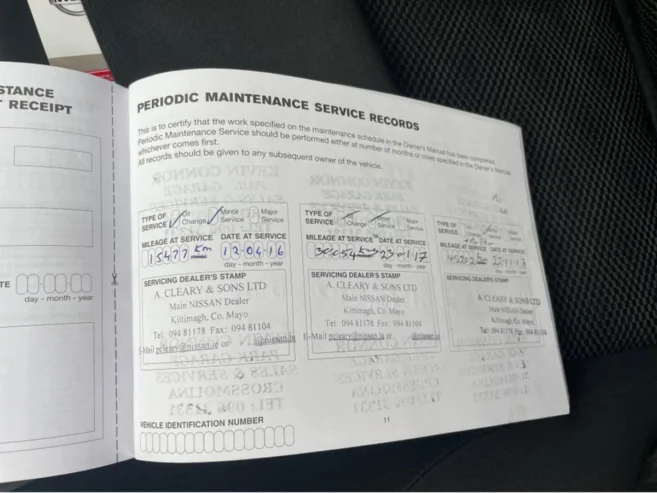 STANCE
RECEIPT
day - month - year
PERIODIC MAINTENANCE SERVICE RECORDS
This is to certify that the work specified on the maintenance schedule in the Owner's Manual has been completed.
Periodic Maintenance Service should be performed either at number of months or miles specified in the Owner's Manual,
whichever comes first.
All records should be given to any subsequent owner of the vehicle.
TYPE OF SERVICE Oil Change Minor Service Major Service
MILEAGE AT SERVICE DATE AT SERVICE
15477 km 12-04-16
day - month - year
SERVICING DEALER'S STAMP
A. CLEARY & SONS LTD
Main NISSAN Dealer
Kiltimagh, Co. Mayo
Tel: 094 81178 Fax: 094 81104
E-Mail pcleary@nissan.ie or @nissan.ie
TYPE OF SERVICE Change Service Major Service
MILEAGE AT SERVICE DATE AT SERVICE
km 23-01-17
day - month - year
SERVICING DEALER'S STAMP
A. CLEARY & SONS LTD
Main NISSAN Dealer
Kiltimagh, Co. Mayo
Tel: 094 81178 Fax: 094 81104
E-Mail pcleary@nissan.ie or @nissan.ie
TYPE OF SERVICE
MILEAGE AT SERVICE DATE AT SERVICE
SERVICING DEALER'S STAMP
A. CLEARY & SONS LTD
Main NISSAN Dealer
Kiltimagh, Co. Mayo
Tel: 094 81178 Fax: 094 81104
VEHICLE IDENTIFICATION NUMBER
11